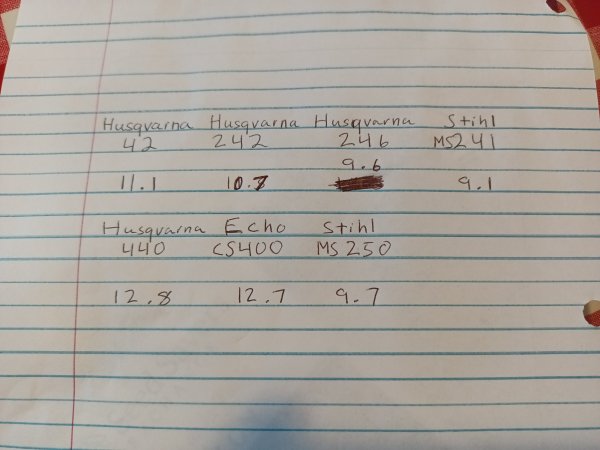 Husqvarna Husqvarna Husqvarna Stihl
42 242 246 MS241
9.6
11.1 10.7 9.1
Husqvarna Echo Stihl
440 CS400 MS250
12.8 12.7 9.7